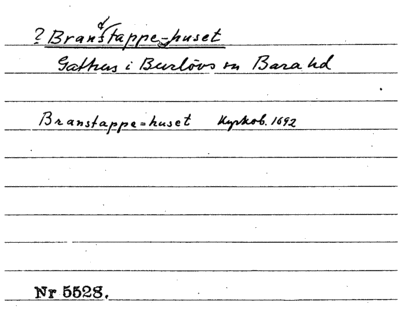 ? Branstappe-huset
Gathus i Burlövs sn Bara hd
Branstappe=huset Kyrkob. 1692
Nr 5528.